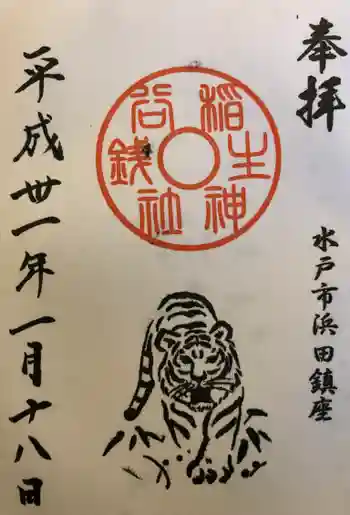 奉拝
水戸市浜田鎮座
稲生神社
谷銭
平成卅一年一月十八日